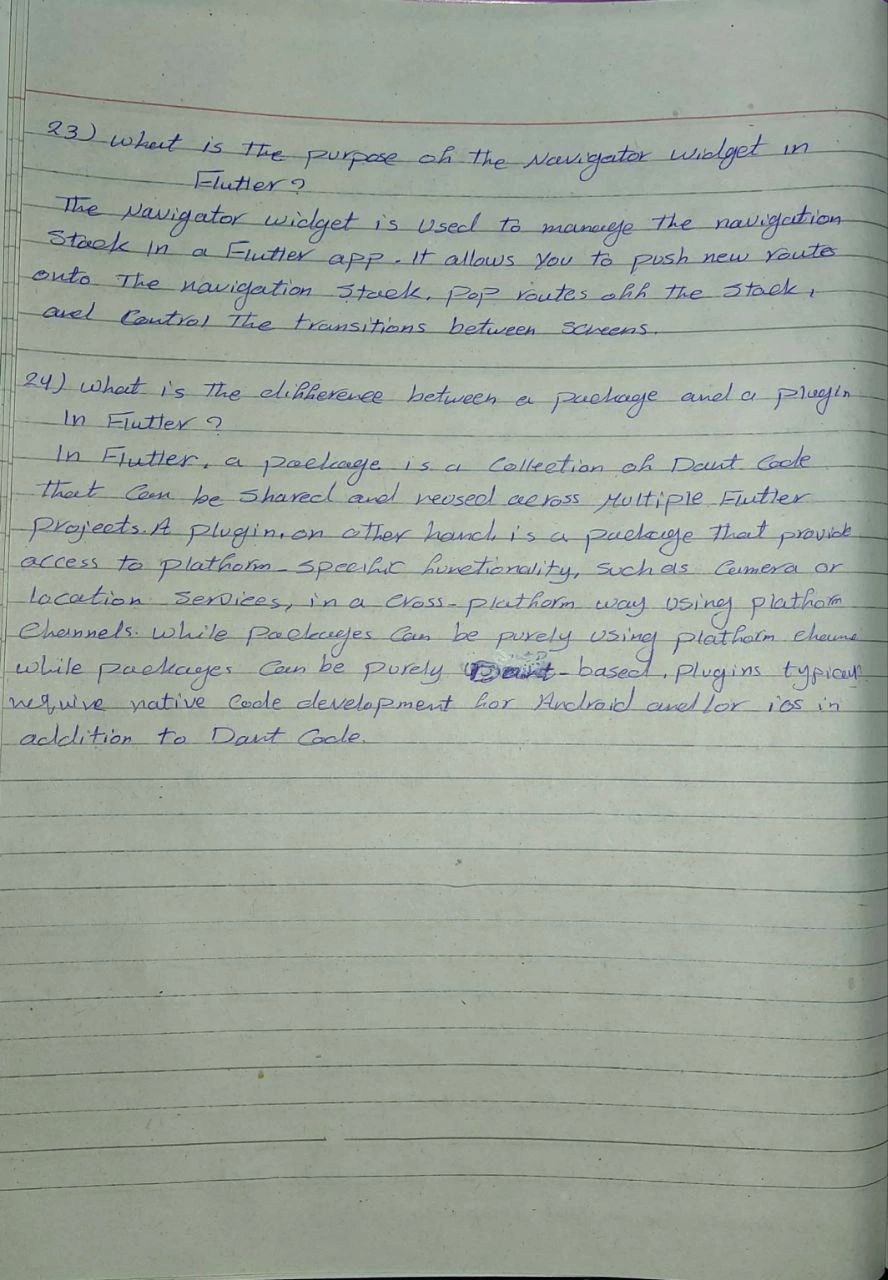 23) What is the purpose of the Navigator widget in
Flutter?
The Navigator widget is used to manage the navigation
Stack in a Flutter app. It allows you to push new routes
onto The navigation Stack, pop routes off the Stack,
and Control The transitions between Screens.
24) What is The difference between a package and a plugin
In Flutter?
In Flutter, a package is a Collection of Dart Code
That Can be Shared and reused across Multiple Flutter
Projects. A plugin, on other hand, is a package that provide
access to platform-specific functionality, Such as Camera or
location Services, in a Cross-platform way using platform
Channels. While Packages Can be purely using platform chann
while packages Can be purely Dart-based, plugins typicall
require native Code development for Android and/or ios in
addition to Dart Code.